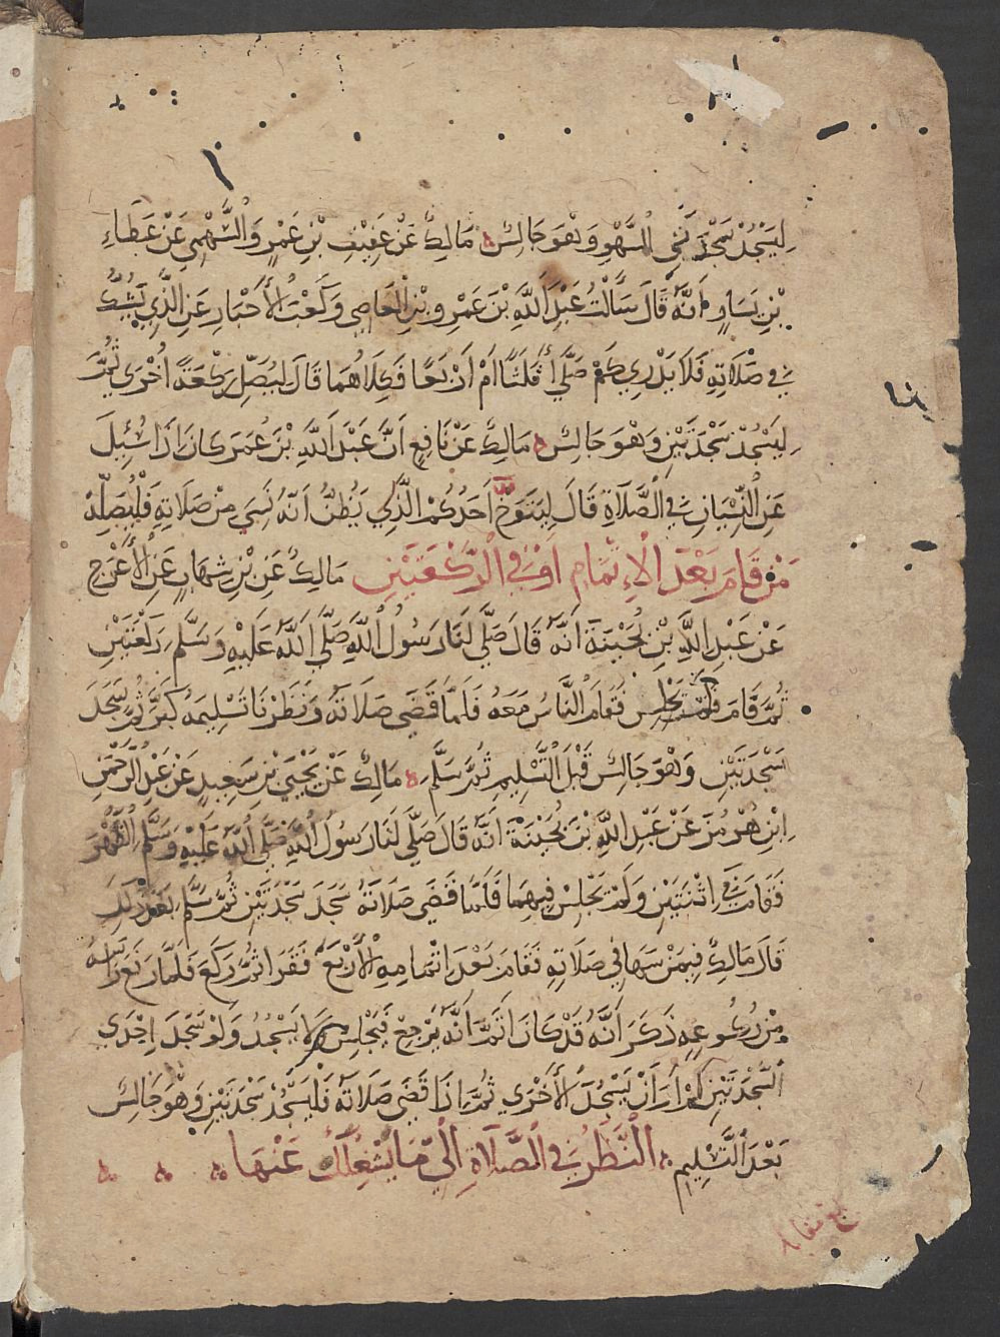 لِيَسْجُدْ سَجْدَتَيِ السَّهْوِ وَهُوَ جَالِسٌ ه مَالِكٌ عَنْ عَفِيفِ بْنِ عَمْرٍو السَّهْمِي عَنْ عَطَاءِ
بْنِ يَسَارٍ أَنَّهُ قَالَ سَأَلْتُ عَبْدَ اللَّهِ بْنَ عَمْرِو بْنِ الْعَاصِي وَكَعْبَ الْأَحْبَارِ عَنِ الَّذِي يَشُكُّ
فِي صَلَاتِهِ فَلَا يَدْرِي كَمْ صَلَّى أَثَلَثًا أَمْ أَرْبَعًا فَكِلَاهُمَا قَالَ لِيُصَلِّ رَكْعَةً أُخْرَى ثُمَّ
لِيَسْجُدْ سَجْدَتَيْنِ وَهْوَ جَالِسٌ ه مَالِكٌ عَنْ نَافِعٍ أَنَّ عَبْدَ اللَّهِ بْنَ عُمَرَ كَانَ إِذَا سُئِلَ
عَنِ النِّسْيَانِ فِي الصَّلَاةِ قَالَ لِيَتَوَخَّ أَحَدُكُمُ الَّذِي يَظُنُّ أَنَّهُ نَسِيَ مِنْ صَلَاتِهِ فَلْيُصَلِّهْ
مَنْ قَامَ بَعْدَ الْإِتْمَامِ أَوْ فِي الرَّكْعَتَيْنِ مَالِكٌ عَنِ بْنِ شِهَابٍ عَنِ الْأَعْرَجِ
عَنْ عَبْدِ اللَّهِ بْنِ بُحَيْنَةَ أَنَّهُ قَالَ صَلَّى لَنَا رَسُولُ اللَّهِ صَلَّى اللَّهُ عَلَيْهِ وَسَلَّمَ رَكْعَتَيْنِ
ثُمَّ قَامَ فَلَمْ يَجْلِسْ فَقَامَ النَّاسُ مَعَهُ فَلَمَّا قَضَى صَلَاتَهُ وَنَظَرْنَا تَسْلِيمَهُ كَبَّرَ ثُمَّ سَجَدَ
سَجْدَتَيْنِ وَهْوَ جَالِسٌ قَبْلَ التَّسْلِيمِ ثُمَّ سَلَّمَ ه مَالِكٌ عَنْ يَحْيَى بْنِ سَعِيدٍ عَنْ عَبْدِ الرَّحْمَنِ
ابْنِ هُرْمُزَ عَنْ عَبْدِ اللَّهِ بْنِ بُحَيْنَةَ أَنَّهُ قَالَ صَلَّى لَنَا رَسُولُ اللَّهِ صَلَّى اللَّهُ عَلَيْهِ وَسَلَّمَ الظُّهْرَ
فَقَامَ فِي اثْنَتَيْنِ وَلَمْ يَجْلِسْ فِيهِمَا فَلَمَّا قَضَى صَلَاتَهُ سَجَدَ سَجْدَتَيْنِ ثُمَّ سَلَّمَ بَعْدَ ذَلِكَ
قَالَ مَالِكٌ فِيمَنْ سَهَا فِي صَلَاتِهِ فَقَامَ بَعْدَ إِتْمَامِهِ الْأَرْبَعَ فَقَرَأَ ثُمَّ رَكَعَ فَلَمَّا رَفَعَ رَأْسَهُ
مِنْ رُكُوعِهِ ذَكَرَ أَنَّهُ قَدْ كَانَ أَتَمَّ أَنَّهُ يَرْجِعُ فَيَجْلِسُ وَلَا يَسْجُدُ وَلَوْ سَجَدَ إِحْدَى
السَّجْدَتَيْنِ لَمْ أَرَ أَنْ يَسْجُدَ الْأُخْرَى ثُمَّ إِذَا قَضَى صَلَاتَهُ فَلْيَسْجُدْ سَجْدَتَيْنِ وَهْوَ جَالِسٌ
بَعْدَ التَّسْلِيمِ ه النَّظَرُ فِي الصَّلَاةِ إِلَى مَا يَشْغَلُكَ عَنْهَا ه ه ه